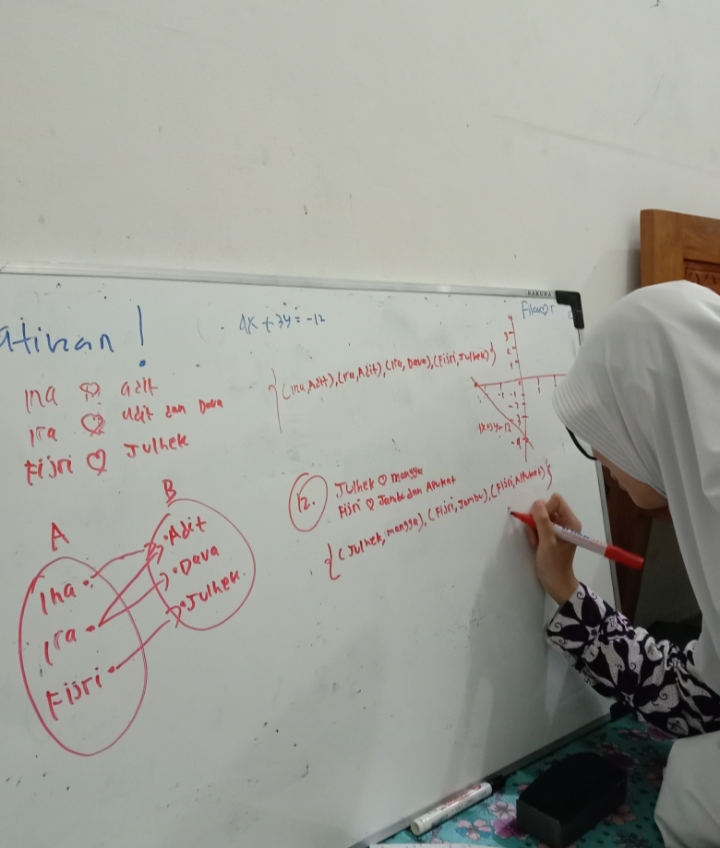 atihan !
Ina ♡ adit
Ira ♡ adit dan Dava
Fijri ♡ Julhek
A
B
Ina
Ira
Fijri
Adit
Dava
Julhek
4x + 3y = -12
{(Ina, Adit), (Ira, Adit), (Ira, Dava), (Fijri, Julhek)}
12. Julhek ♡ mangga
Fijri ♡ Jambu dan Alpukat
{(Julhek, mangga), (Fijri, Jambu), (Fijri, Alpukat)}
4x+3y=-12
SAKURA